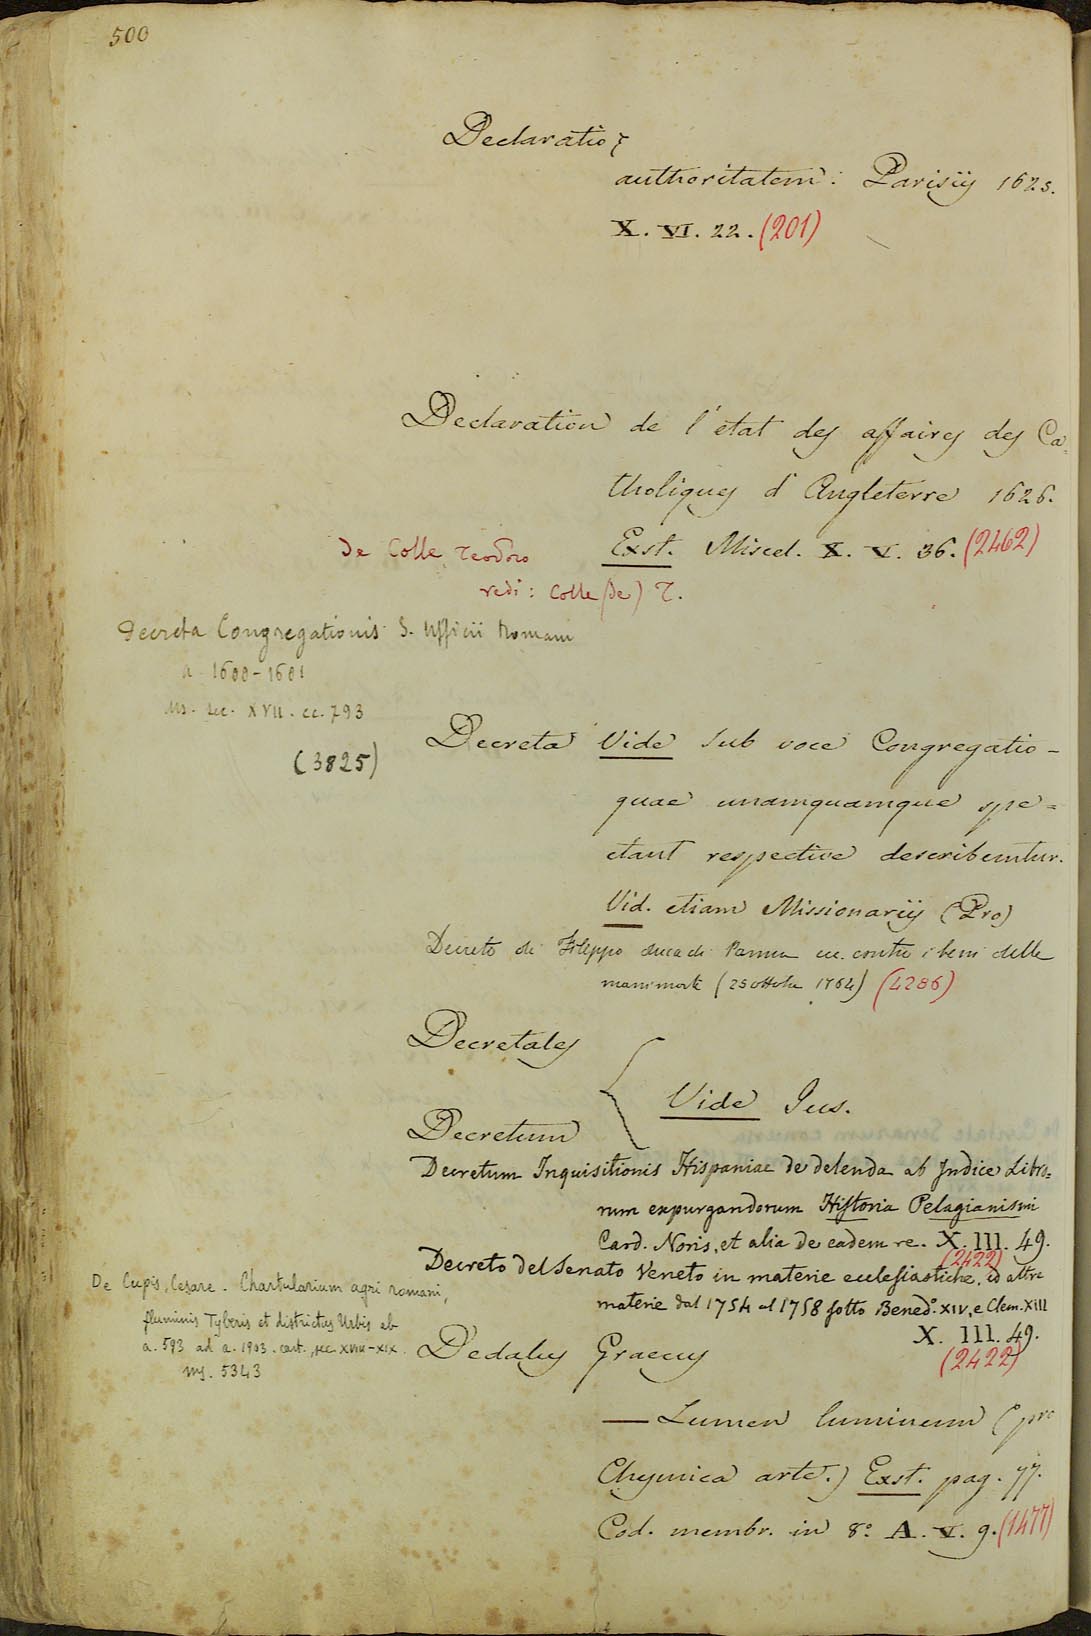 500
Declaratio
authoritatem: Parisijs 1625.
X. VI. 22. (201)
Declaration de l'état des affaires des Ca=
tholiques d'Angleterre 1626.
Exst. Miscel. X. V. 36. (2462)
De Colle Teodoro
vedi: Colle (de) T.
Decreta Congregationis S. Ufficii Romani
a. 1600-1601
Ms. sec. XVII. cc. 793
(3825)
Decreta Vide sub voce Congregatio-
quae unamquamque spe=
ctant respective describentur.
Vid. etiam Missionarijs (Pro)
Decreto di Filippo duca di Parma cc. contro i beni delle
manimorte (25 ottobre 1764) (4286)
Decretales
Vide Jus.
Decretum
Decretum Inquisitionis Hispaniae de delenda ab Indice Libro=
rum expurgandorum Historia Pelagianismi
Card. Noris, et alia de eadem re. X. III. 49.
(2422)
Decreto del Senato Veneto in materie ecclesiastiche, ed altre
materie dal 1754 al 1758 sotto Bened.º XIV, e Clem. XIII
X. III. 49.
(2422)
De Cupis, Cesare. Chartularium agri romani,
fluminis Tyberis et districtus Urbis ab
a. 593 ad a. 1903. cart., sec. XVIII-XIX.
ms. 5343
Dedalus Graecus
— Lumen luminum (pro
Chymica arte.) Exst. pag. 77.
Cod. membr. in 8º A. V. 9. (1477)